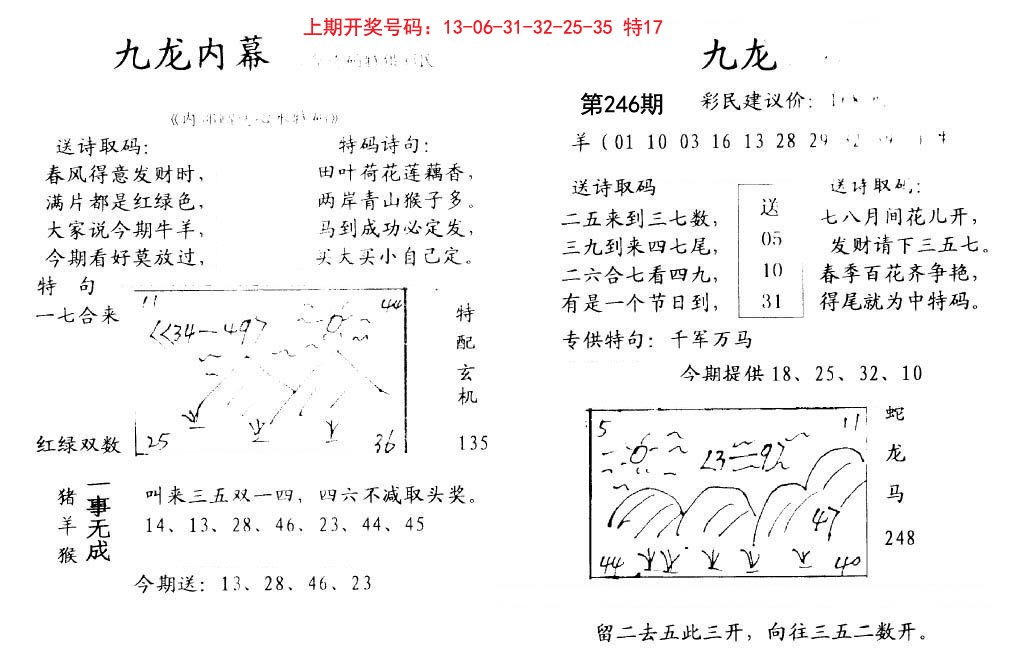 上期开奖号码：13-06-31-32-25-35 特17
九龙内幕
送诗取码：
春风得意发财时，
满片都是红绿色，
大家说今期牛羊，
今期看好莫放过，
特码诗句：
田叶荷花莲藕香，
两岸青山猴子多。
马到成功必定发，
买大买小自己定。
特 句
一七合来
红绿双数
11
44
<<34—49>
25
36
特
配
玄
机
135
猪
羊
猴
一事无成
叫来三五双一四，四六不减取头奖。
14、13、28、46、23、44、45
今期送：13、28、46、23
九龙
第246期
彩民建议价：
羊（01 10 03 16 13 28 29
送诗取码
二五来到三七数，
三九到来四七尾，
二六合七看四九，
有是一个节日到，
送
05
10
31
送诗取码：
七八月间花儿开，
发财请下三五七。
春季百花齐争艳，
得尾就为中特码。
专供特句：千军万马
今期提供 18、25、32、10
5
11
47
44
40
蛇
龙
马
248
留二去五此三开，向往三五二数开。